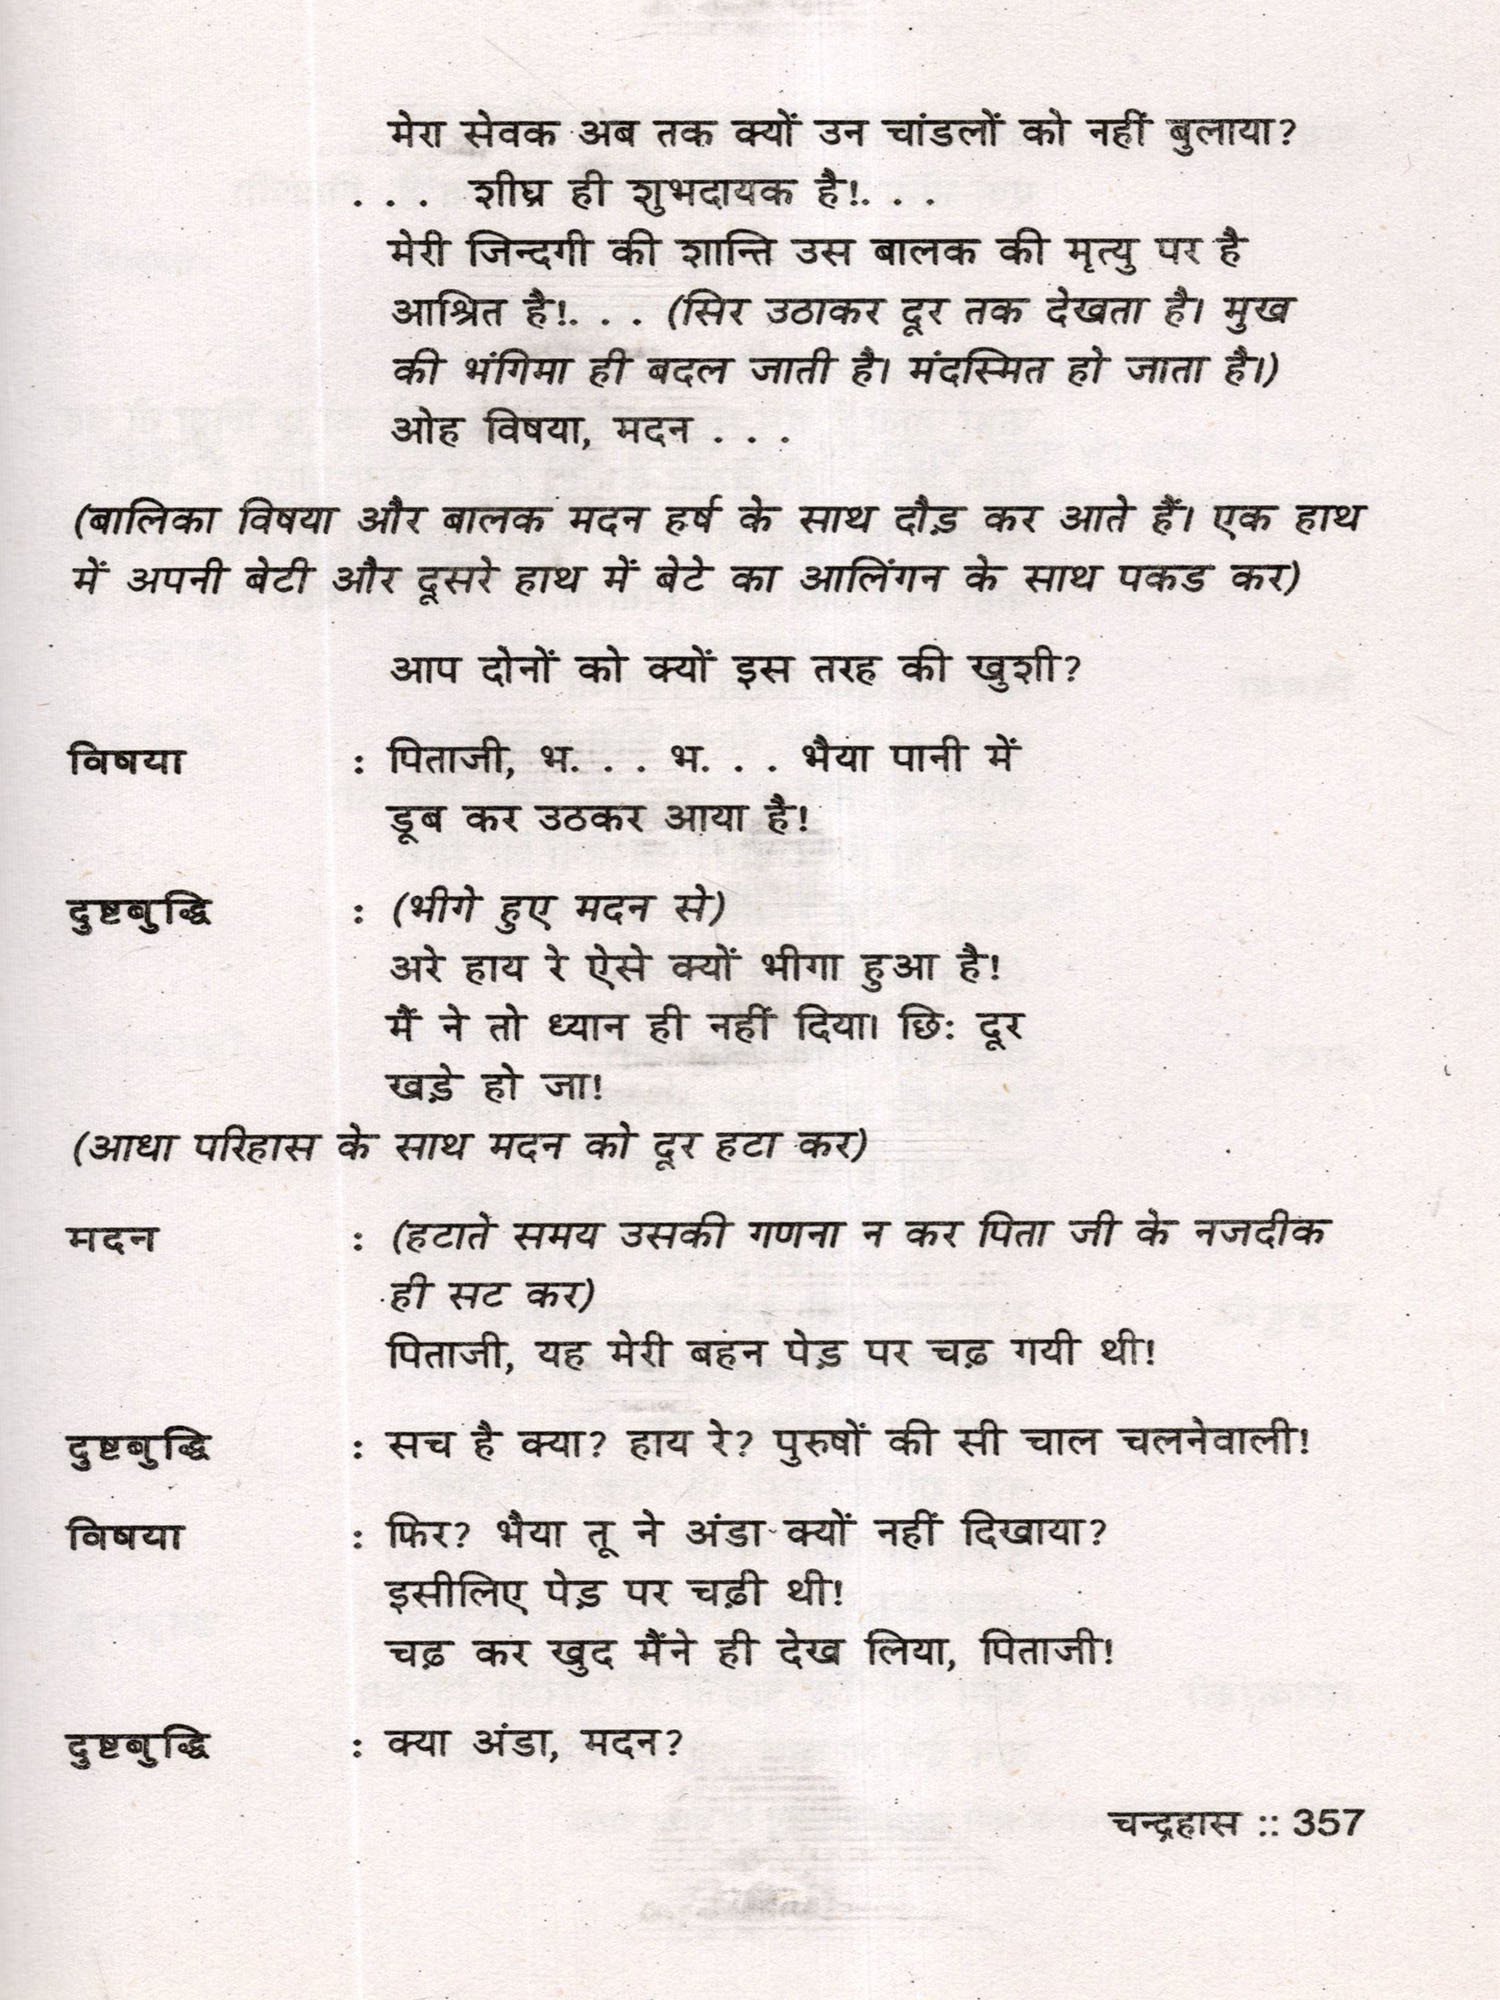 मेरा सेवक अब तक क्यों उन चांडलों को नहीं बुलाया?
. . . शीघ्र ही शुभदायक है!. . .
मेरी जिन्दगी की शान्ति उस बालक की मृत्यु पर है
आश्रित है!. . . (सिर उठाकर दूर तक देखता है। मुख
की भंगिमा ही बदल जाती है। मंदस्मित हो जाता है।)
ओह विषया, मदन . . .
(बालिका विषया और बालक मदन हर्ष के साथ दौड़ कर आते हैं। एक हाथ
में अपनी बेटी और दूसरे हाथ में बेटे का आलिंगन के साथ पकड कर)
आप दोनों को क्यों इस तरह की खुशी?
विषया : पिताजी, भ. . . भ. . . भैया पानी में
डूब कर उठकर आया है!
दुष्टबुद्धि : (भीगे हुए मदन से)
अरे हाय रे ऐसे क्यों भीगा हुआ है!
मैं ने तो ध्यान ही नहीं दिया। छि: दूर
खड़े हो जा!
(आधा परिहास के साथ मदन को दूर हटा कर)
मदन : (हटाते समय उसकी गणना न कर पिता जी के नजदीक
ही सट कर)
पिताजी, यह मेरी बहन पेड़ पर चढ़ गयी थी!
दुष्टबुद्धि : सच है क्या? हाय रे? पुरुषों की सी चाल चलनेवाली!
विषया : फिर? भैया तू ने अंडा क्यों नहीं दिखाया?
इसीलिए पेड़ पर चढ़ी थी!
चढ़ कर खुद मैंने ही देख लिया, पिताजी!
दुष्टबुद्धि : क्या अंडा, मदन?
चन्द्रहास :: 357